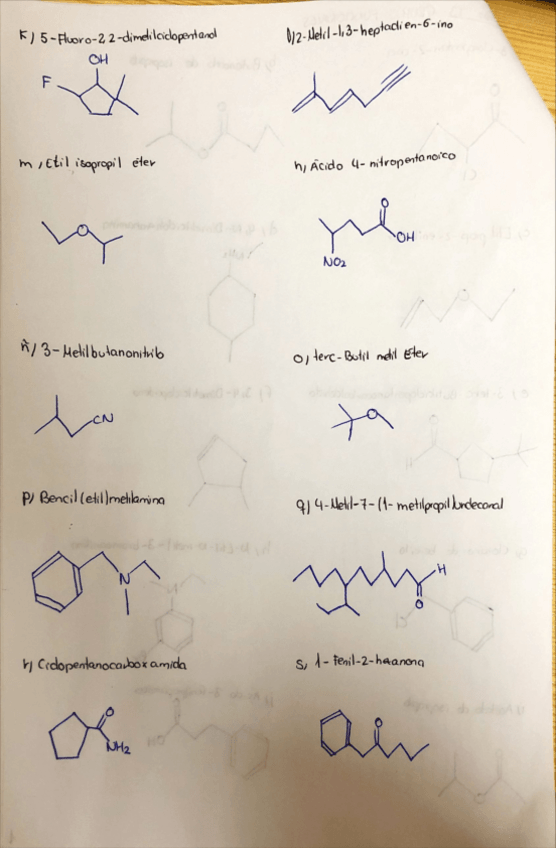 k) 5-Fluoro-2,2-dimetilciclopentanol
l) 2-Metil-1,3-heptadien-6-ino
OH
F
m) Etil isopropil éter
n) Ácido 4-nitropentanoico
O
O
OH
NO2
ñ) 3-Metilbutanonitrilo
o) terc-Butil metil Éter
CN
O
p) Bencil(etil)metilamina
q) 4-Metil-7-(1-metilpropil)undecanal
N
H
O
r) Ciclopentanocarboxamida
s) 1-Fenil-2-hexanona
O
NH2
O